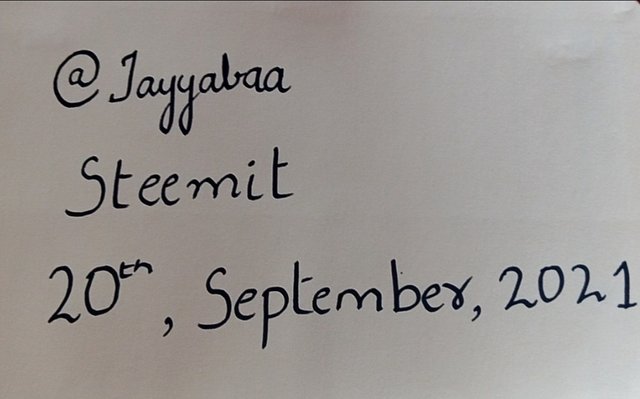 @Jayyabaa
Steemit
20th, September, 2021